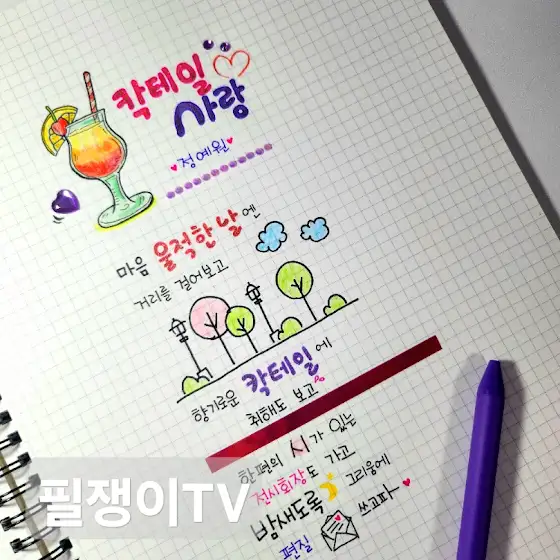 칵테일
사랑
정예원
마음 울적한 날엔
거리를 걸어보고
향기로운 칵테일에
취해도 보고
한편의 시가 있는
전시회장도 가고
밤새도록 그리움에
편질 쓰고파
필쟁이TV